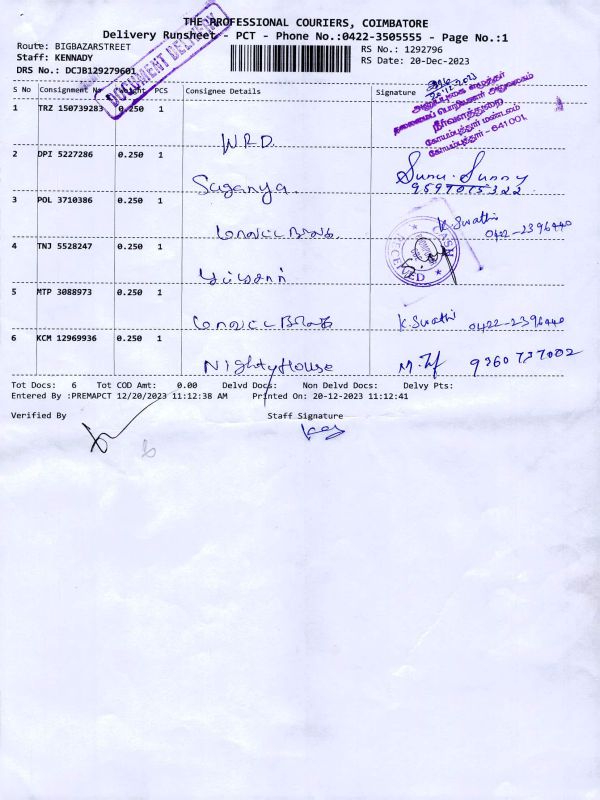 THE PROFESSIONAL COURIERS, COIMBATORE
Delivery Runsheet - PCT - Phone No.:0422-3505555 - Page No.:1
Route: BIGBAZARSTREET
RS No.: 1292796
Staff: KENNADY
RS Date: 20-Dec-2023
DRS No.: DCJB129279601
DOCUMENT DELIVERY
S No Consignment No Weight PCS Consignee Details Signature
20.12.2023
தலைமைப் பொறியாளர் அலுவலகம்
நீர்வளத்துறை
கோயம்புத்தூர் மண்டலம்
கோயம்புத்தூர் - 641001.
1 TRZ 150739283 0.250 1 W.R.D.
2 DPI 5227286 0.250 1 Suganya. Sunu Sunny
3 POL 3710386 0.250 1 K. Swathi 0422-2396440
CASH
RECEIVED
4 TNJ 5528247 0.250 1
5 MTP 3088973 0.250 1 K. Swathi 0422-2396440
6 KCM 12969936 0.250 1 Nighty House 9360737002
Tot Docs: 6 Tot COD Amt: 0.00 Delvd Docs: Non Delvd Docs: Delvy Pts:
Entered By :PREMAPCT 12/20/2023 11:12:38 AM Printed On: 20-12-2023 11:12:41
Verified By Staff Signature